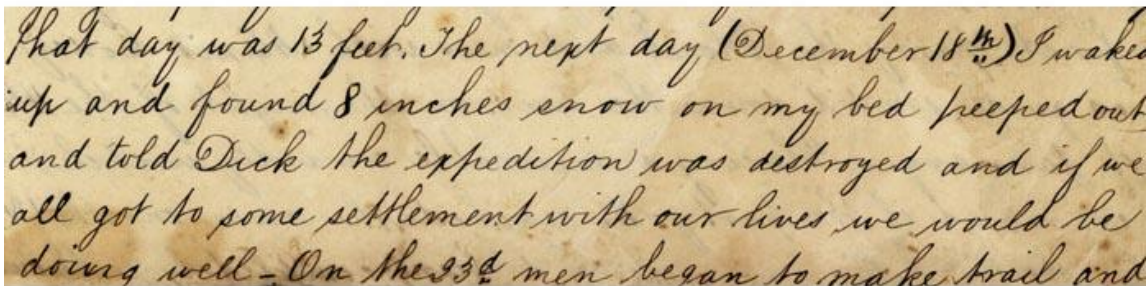 that day was 13 feet. The next day (December 18th) I waked
up and found 8 inches snow on my bed peeped out
and told Dick the expedition was destroyed and if we
all got to some settlement with our lives we would be
doing well - On the 23d men began to make trail and